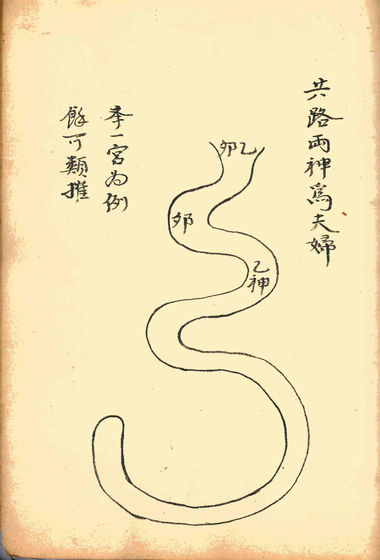 共路兩神爲夫婦
乙卯
卯
乙神
举一宮为例
餘可類推